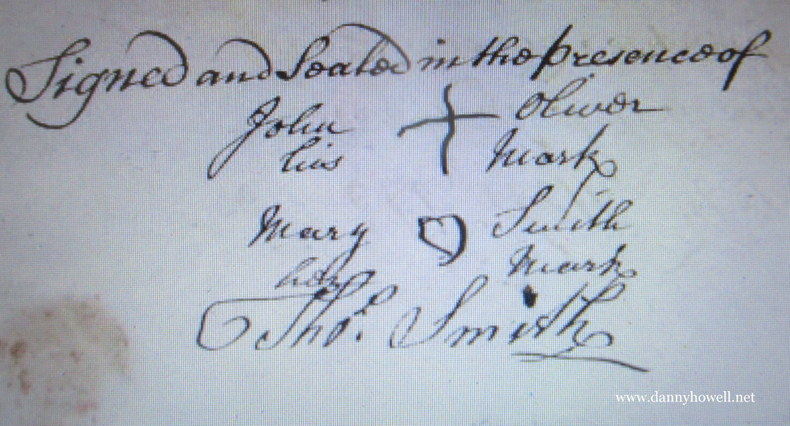 Signed and Sealed in the presence of
John + Oliver
his Mark
Mary Smith
her Mark
Tho.s Smith
www.dannyhowell.net